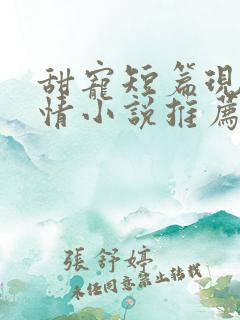 甜寵短篇現
情小說推薦
張舒婷
未經同意禁止轉載